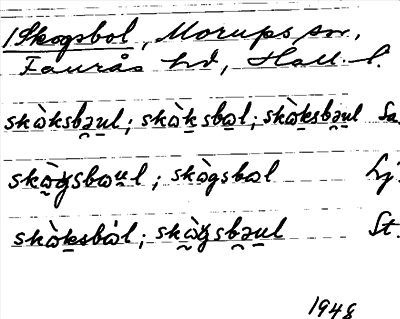 1 Skogsbol, Morups sn,
Faurås hd, Hall. l.
skòksbəul; skòksbəl; skòksbəul Sa
skògsbəul; skògsbəl Lj.
skòksbòl; skògsbəul St.
1948